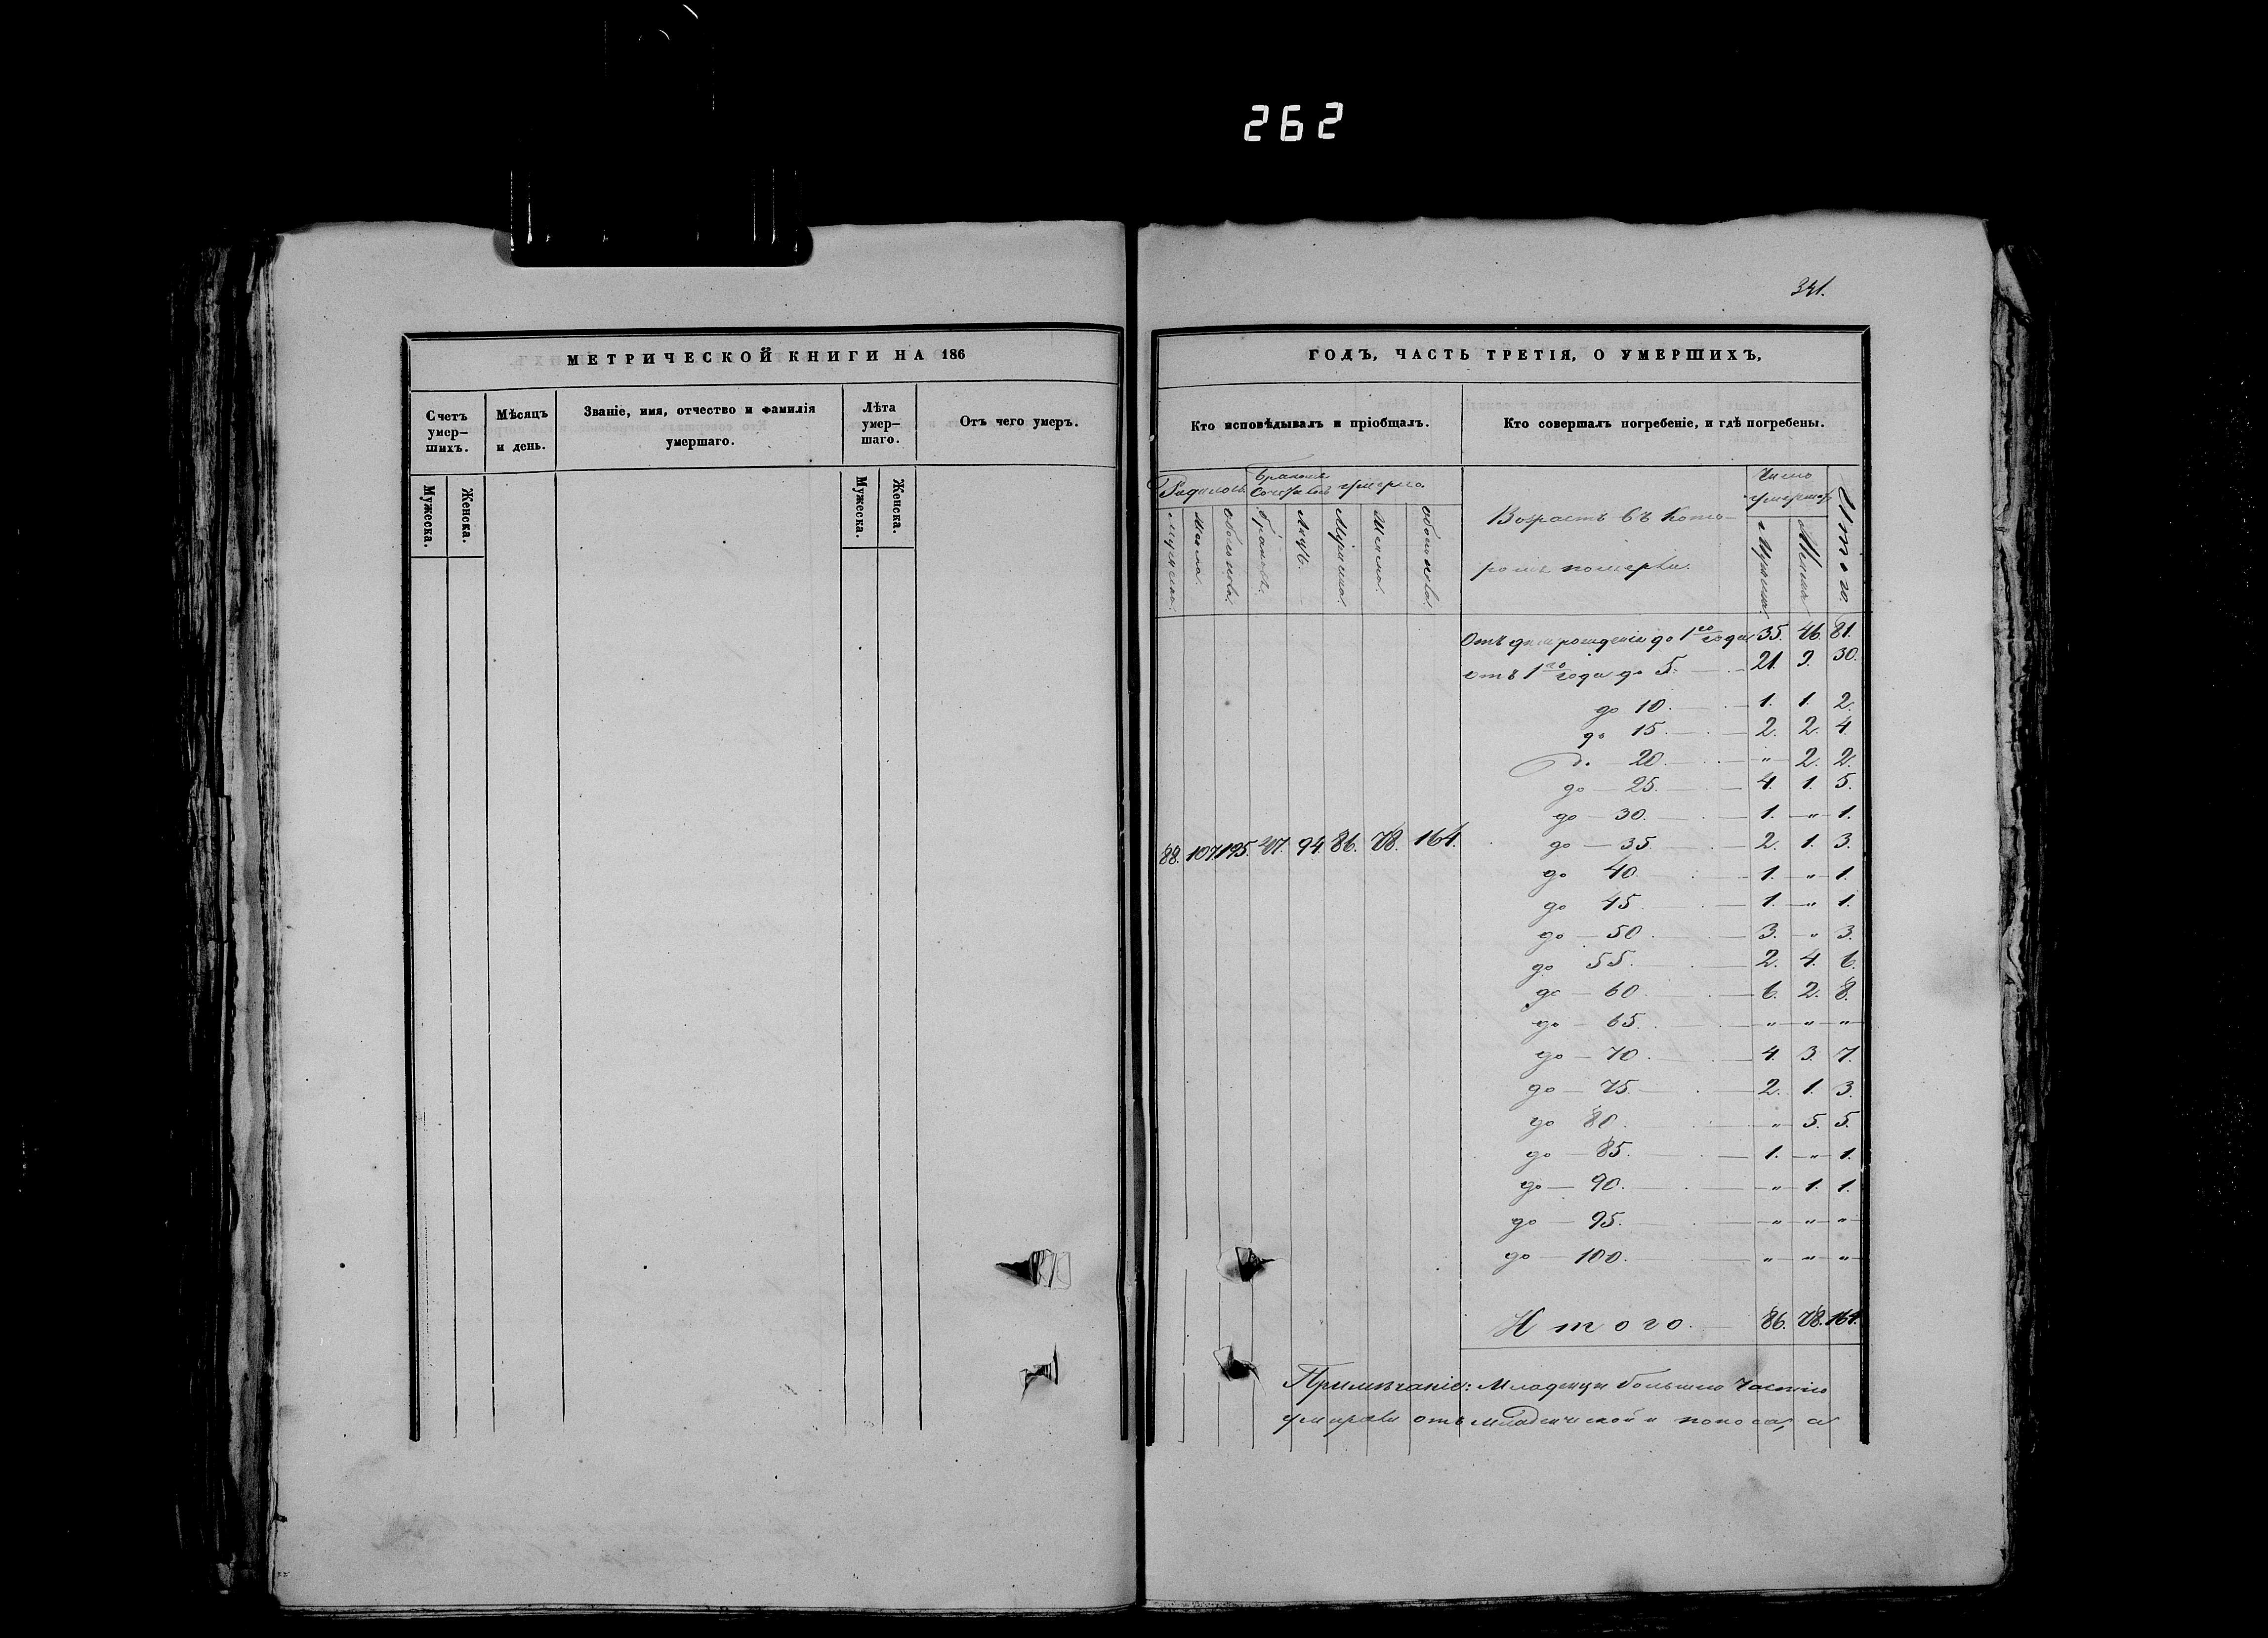 262
341.
МЕТРИЧЕСКОЙ КНИГИ НА 186
Счетъ умер–шихъ.
Мѣсяцъ и день.
Званіе, имя, отчество и фамилія умершаго.
Лѣта умер–шаго.
Отъ чего умеръ.
Мужеска.
Женска.
Мужеска.
Женска.
ГОДЪ, ЧАСТЬ ТРЕТІЯ, О УМЕРШИХЪ,
Кто исповѣдывалъ и пріобщалъ.
Кто совершалъ погребеніе, и гдѣ погребены.
Родилось
Бракомъ
умерло
Возрастъ въ кото–
ромъ померли.
Число
умерших
Итого.
88. 107 195. 47. 94. 86. 78. 164.
Отъ дня рожденія до 1го года 35. 46. 81.
отъ 1го года до 5. 21. 9. 30.
до 10. 1. 1. 2.
до 15. 2. 2. 4.
до 20. " 2. 2.
до 25. 4. 1. 5.
до 30. 1. " 1.
до 35. 2. 1. 3.
до 40. 1. " 1.
до 45. 1. " 1.
до 50. 3. " 3.
до 55. 2. 4. 6.
до 60. 6. 2. 8.
до 65. " " "
до 70. 4. 3. 7.
до 75. 2. 1. 3.
до 80. " 5. 5.
до 85. 1. " 1.
до 90. " 1. 1.
до 95. " " "
до 100. " " "
Итого. 86. 78. 164.
Примѣчаніе: Младенцы большею частію
умирали отъ младенческой и поноса, а